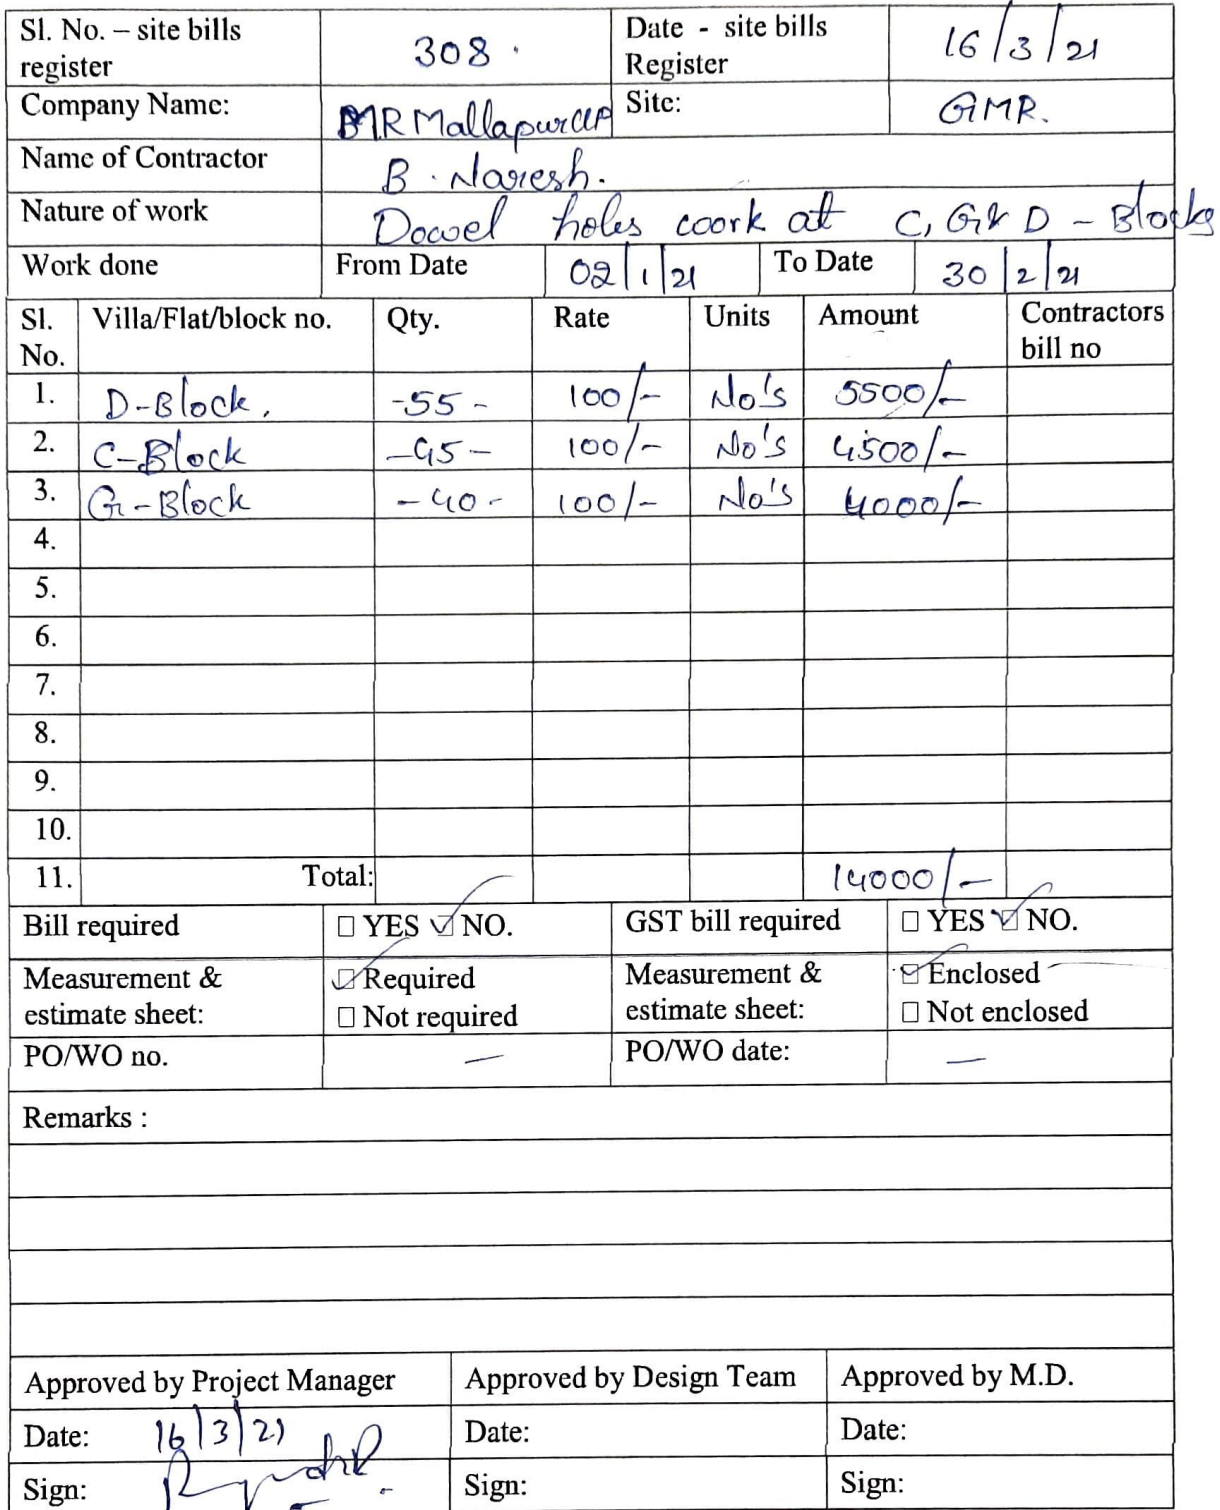 Sl. No. – site bills register 308. Date - site bills Register 16/3/21
Company Name: MR Mallapur LLP Site: GMR.
Name of Contractor B. Naresh.
Nature of work Dowel holes work at C, G & D - Blocks
Work done From Date 02/1/21 To Date 30/2/21
Sl. No. Villa/Flat/block no. Qty. Rate Units Amount Contractors bill no
1. D-Block, -55- 100/- No's 5500/-
2. C-Block -45- 100/- No's 4500/-
3. G-Block -40- 100/- No's 4000/-
4.
5.
6.
7.
8.
9.
10.
11. Total: 14000/-
Bill required ☐ YES ☑ NO. GST bill required ☐ YES ☑ NO.
Measurement & estimate sheet: ☑ Required ☐ Not required Measurement & estimate sheet: ☑ Enclosed ☐ Not enclosed
PO/WO no. — PO/WO date: —
Remarks :
Approved by Project Manager Approved by Design Team Approved by M.D.
Date: 16/3/21 Date: Date:
Sign: Sign: Sign: